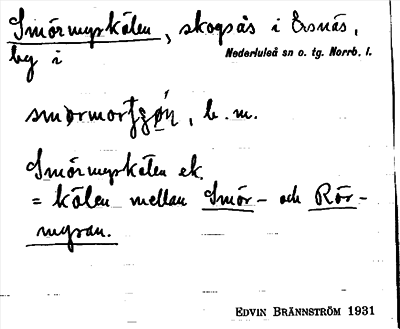 Smörmyrkölen, skogsås i Ersnäs,
by i Nederluleå sn o. tg. Norrb. l.
b. m.
Smörmyrkölen ek.
= kölen mellan Smör- och Rör-
myran.
EDVIN BRÄNNSTRÖM 1931